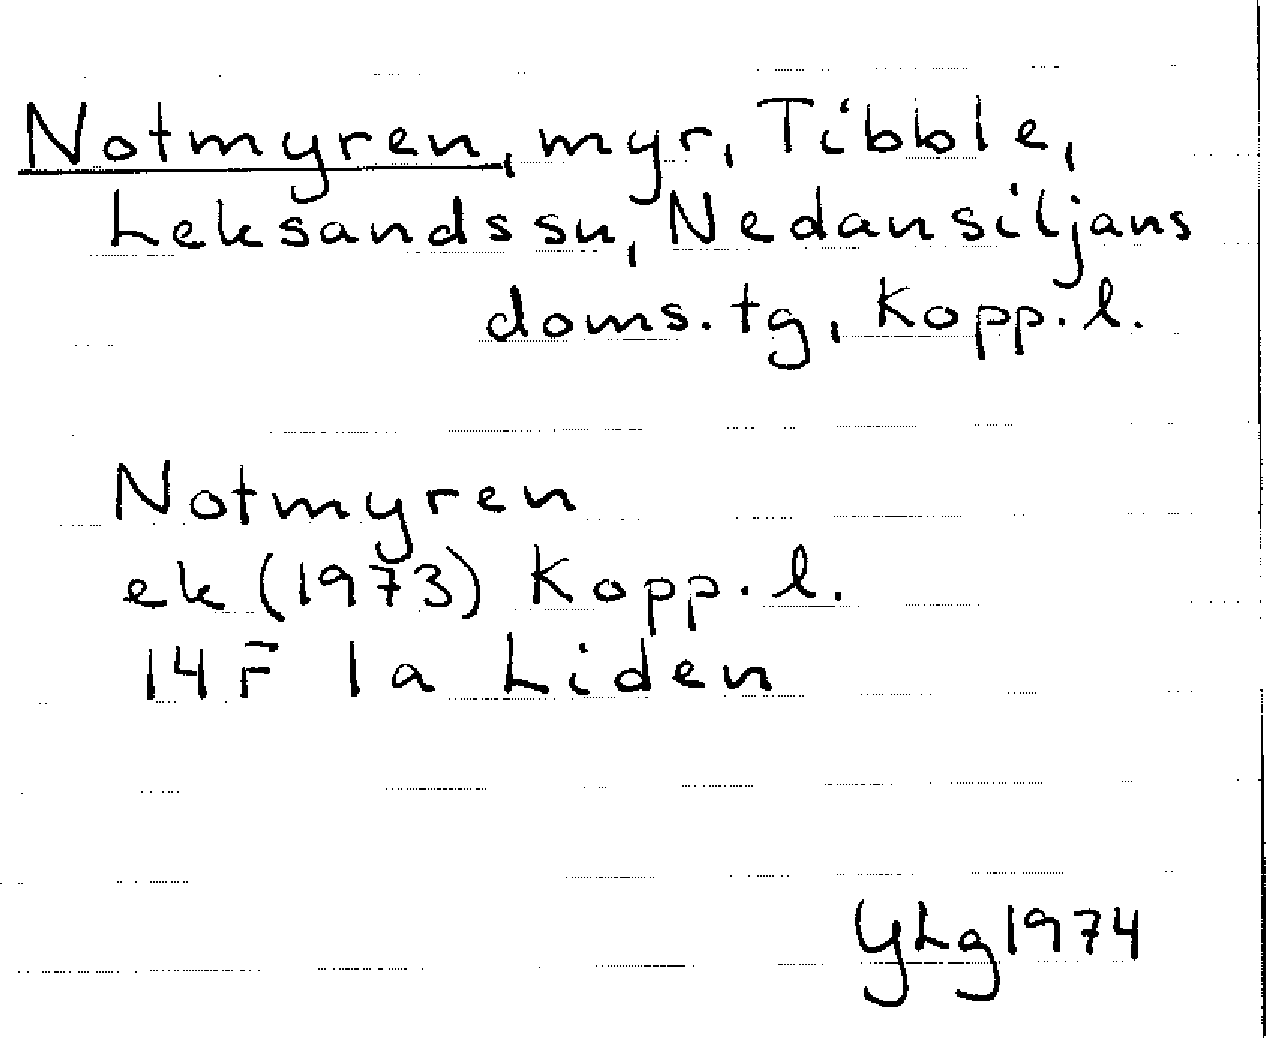 Notmyren, myr, Tibble,
Leksands sn, Nedansiljans
doms.tg, Kopp.l.
Notmyren
ek (1973) Kopp.l.
14F 1a Liden
YLg 1974